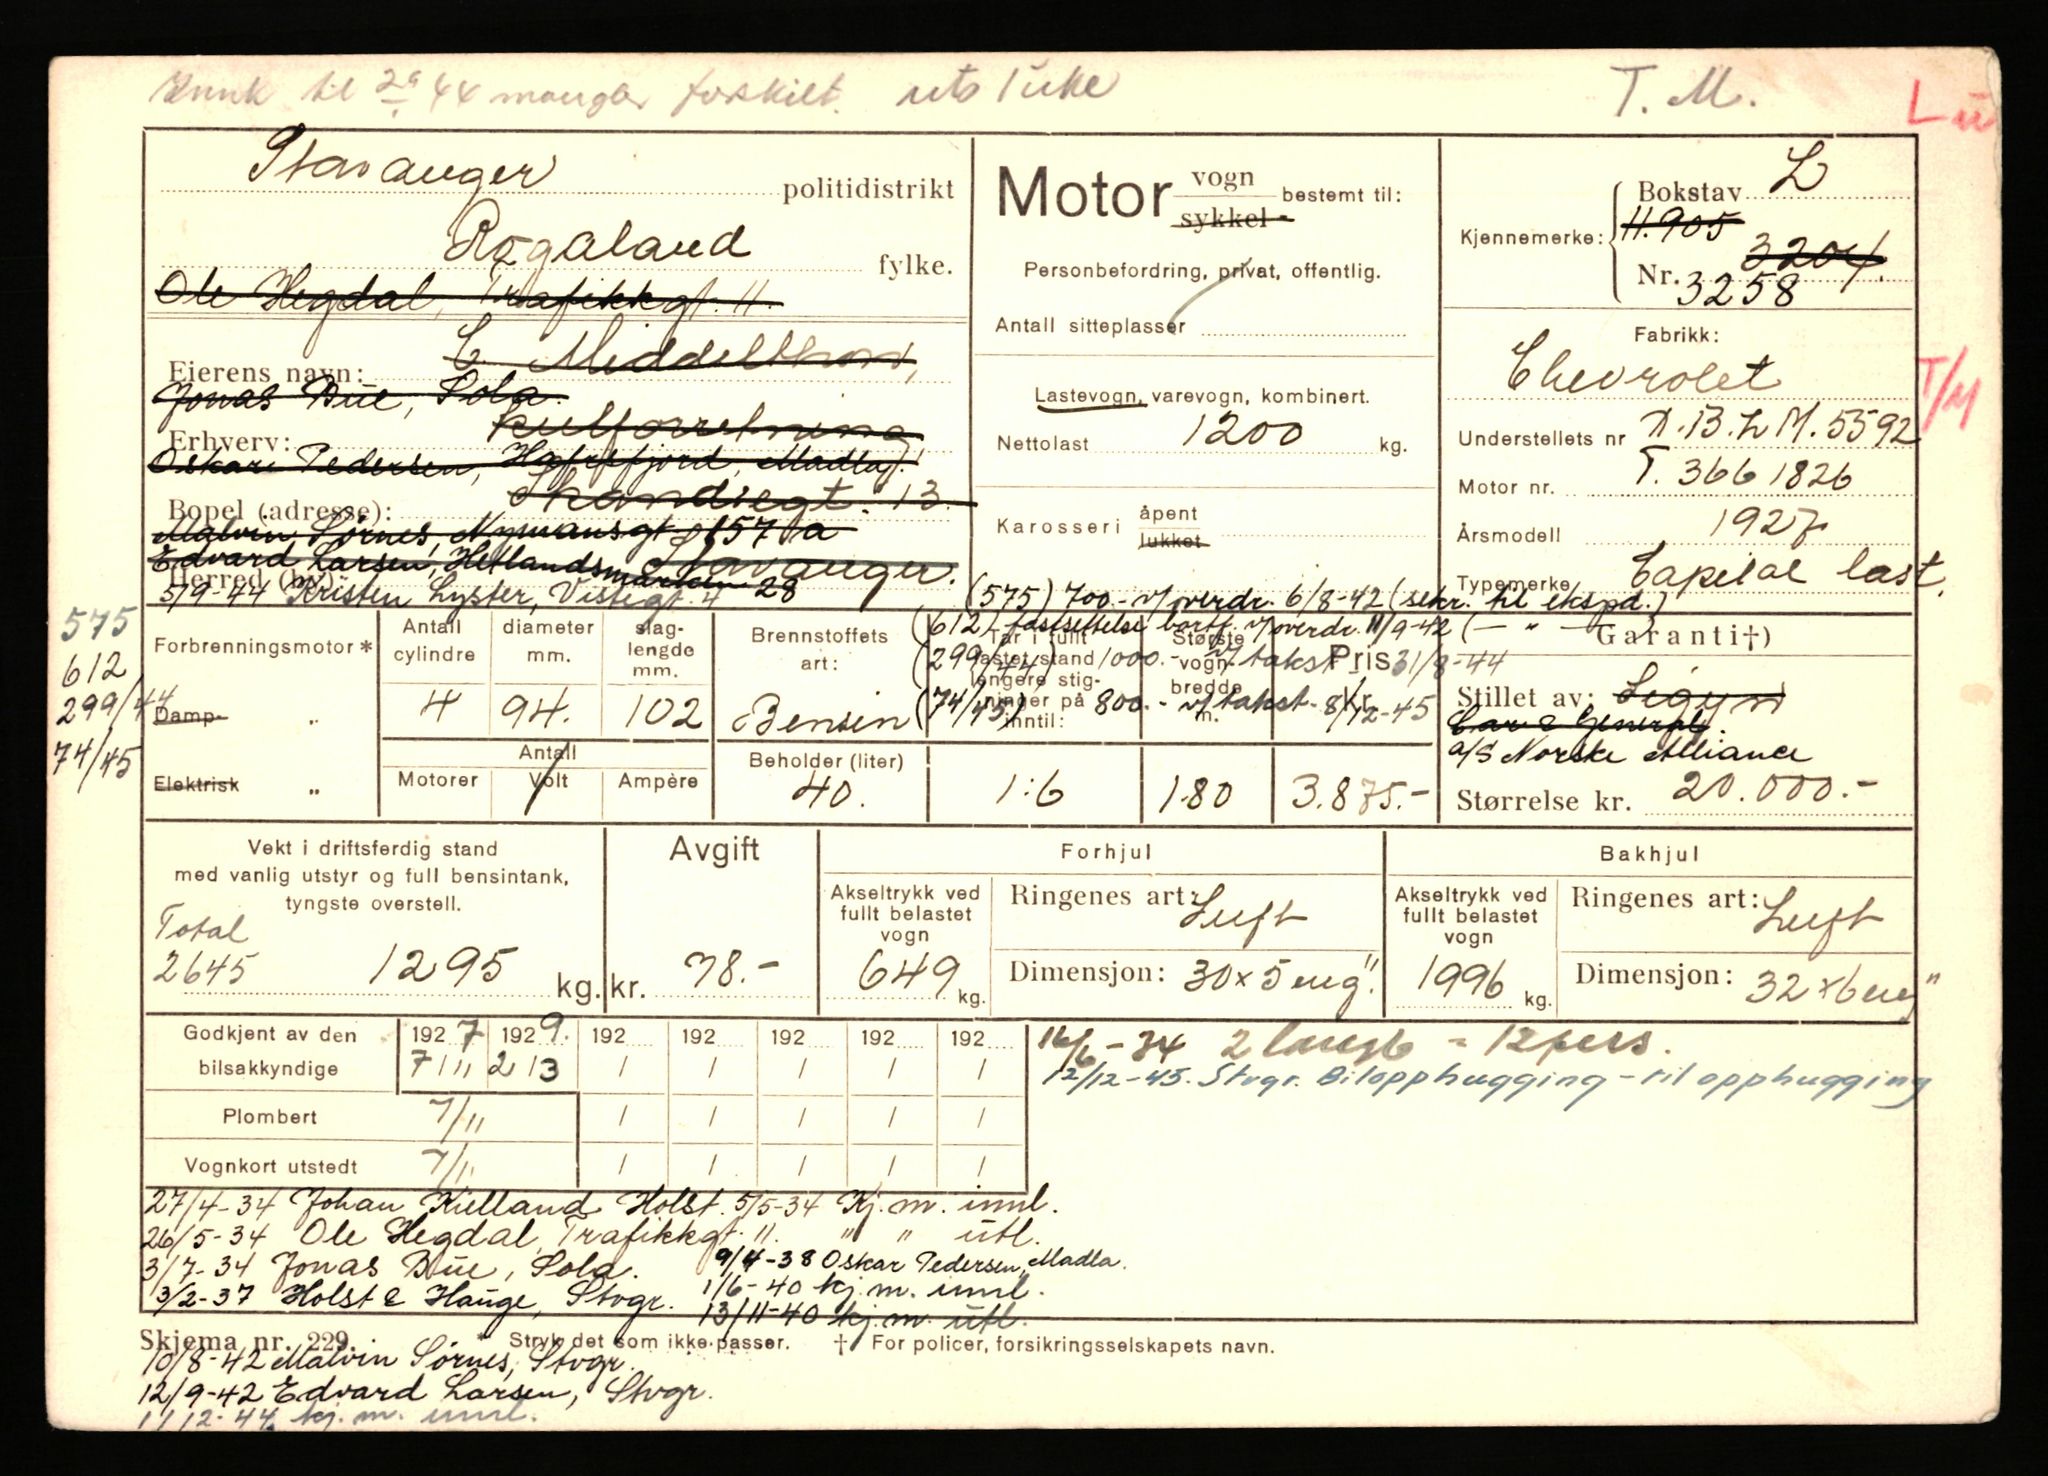 til 2/9 44 mangler forskilt.
T. M.
L
Stavanger politidistrikt
Rogaland fylke.
Ole Hegdal, Trafikkgt. 11.
Eierens navn: C. Middelthon,
Jonas Bue, Sola.
Erhverv: kulforretning
Oskar Pedersen, Hafrsfjord, Madla.
Bopel (adresse): 13
Malvin Sørnes, Nymansgt 157 a
Edvard Larsen, Hetlandsmarken 28
Herred (by): Stavanger.
5/9-44 Kristen Lyster, Vistegt. 4
Motor vogn sykkel bestemt til:
Personbefordring, privat, offentlig.
Antall sitteplasser
Lastevogn, varevogn, kombinert.
Nettolast 1200 kg.
Karosseri åpent lukket
Kjennemerke: Bokstav L
11.905
3204.
Nr. 3258
Fabrikk:
Chevrolet
T/M
Understellets nr X.B.L M.5592
Motor nr. T. 3661826
Årsmodell 1927
Typemerke Capital last.
(575) 700.- v/overdr. 6/8-42 (sekr. til ekspd.)
(612) fastsettelse bortf. v/overdr. 11/9-42 (— " —
(299/44) 1000.- v/takst 31/8-44
(74/45) 800.- v/takst 8/12-45
575
612
299/44
74/45
Forbrenningsmotor *
Damp- "
Elektrisk "
Antall cylindre 4
diameter mm. 94.
slaglengde mm. 102
Antall
Motorer Volt Ampère
Brennstoffets art: Bensin
Beholder (liter) 40.
Tar i fullt lastet stand lengere stigninger på inntil: 1:6
Største vognbredde m. 1.80
Pris kr. 3.875.-
Garanti†)
Stillet av: Sigyn
Car & General.
a/s Norske Alliance
Størrelse kr. 20.000.-
Vekt i driftsferdig stand
med vanlig utstyr og full bensintank,
tyngste overstell.
Total
2645 1295 kg.
Avgift
kr. 78.-
Forhjul
Akseltrykk ved fullt belastet vogn 649 kg.
Ringenes art: Luft
Dimensjon: 30 x 5 eng"
Bakhjul
Akseltrykk ved fullt belastet vogn 1996 kg.
Ringenes art: Luft
Dimensjon: 32 x 6 eng"
Godkjent av den bilsakkyndige 1927 1929. 192 192 192 192 192
7/11 2/3 / / / / /
Plombert 7/11 / / / / /
Vognkort utstedt 7/11 / / / / /
16/6-34 2 = 12 pers.
12/12-45. Stvgr. Bilopphugging - til opphugging
27/4-34 Johan Kielland Holst. 5/5-34 Kj. m. innl.
26/5-34 Ole Hegdal, Trafikkgt. 11. " " utl.
3/7-34 Jonas Bue, Sola. 9/4-38 Oskar Pedersen, Madla.
3/2-37 Holst & Hauge, Stvgr. 1/6-40 kj. m. innl.
13/11-40 kj. m. utl.
Skjema nr. 229. * Stryk det som ikke passer. † For policer, forsikringsselskapets navn.
10/8-42 Malvin Sørnes, Stvgr.
12/9-42 Edvard Larsen, Stvgr.
1/12-44 kj. m. innl.